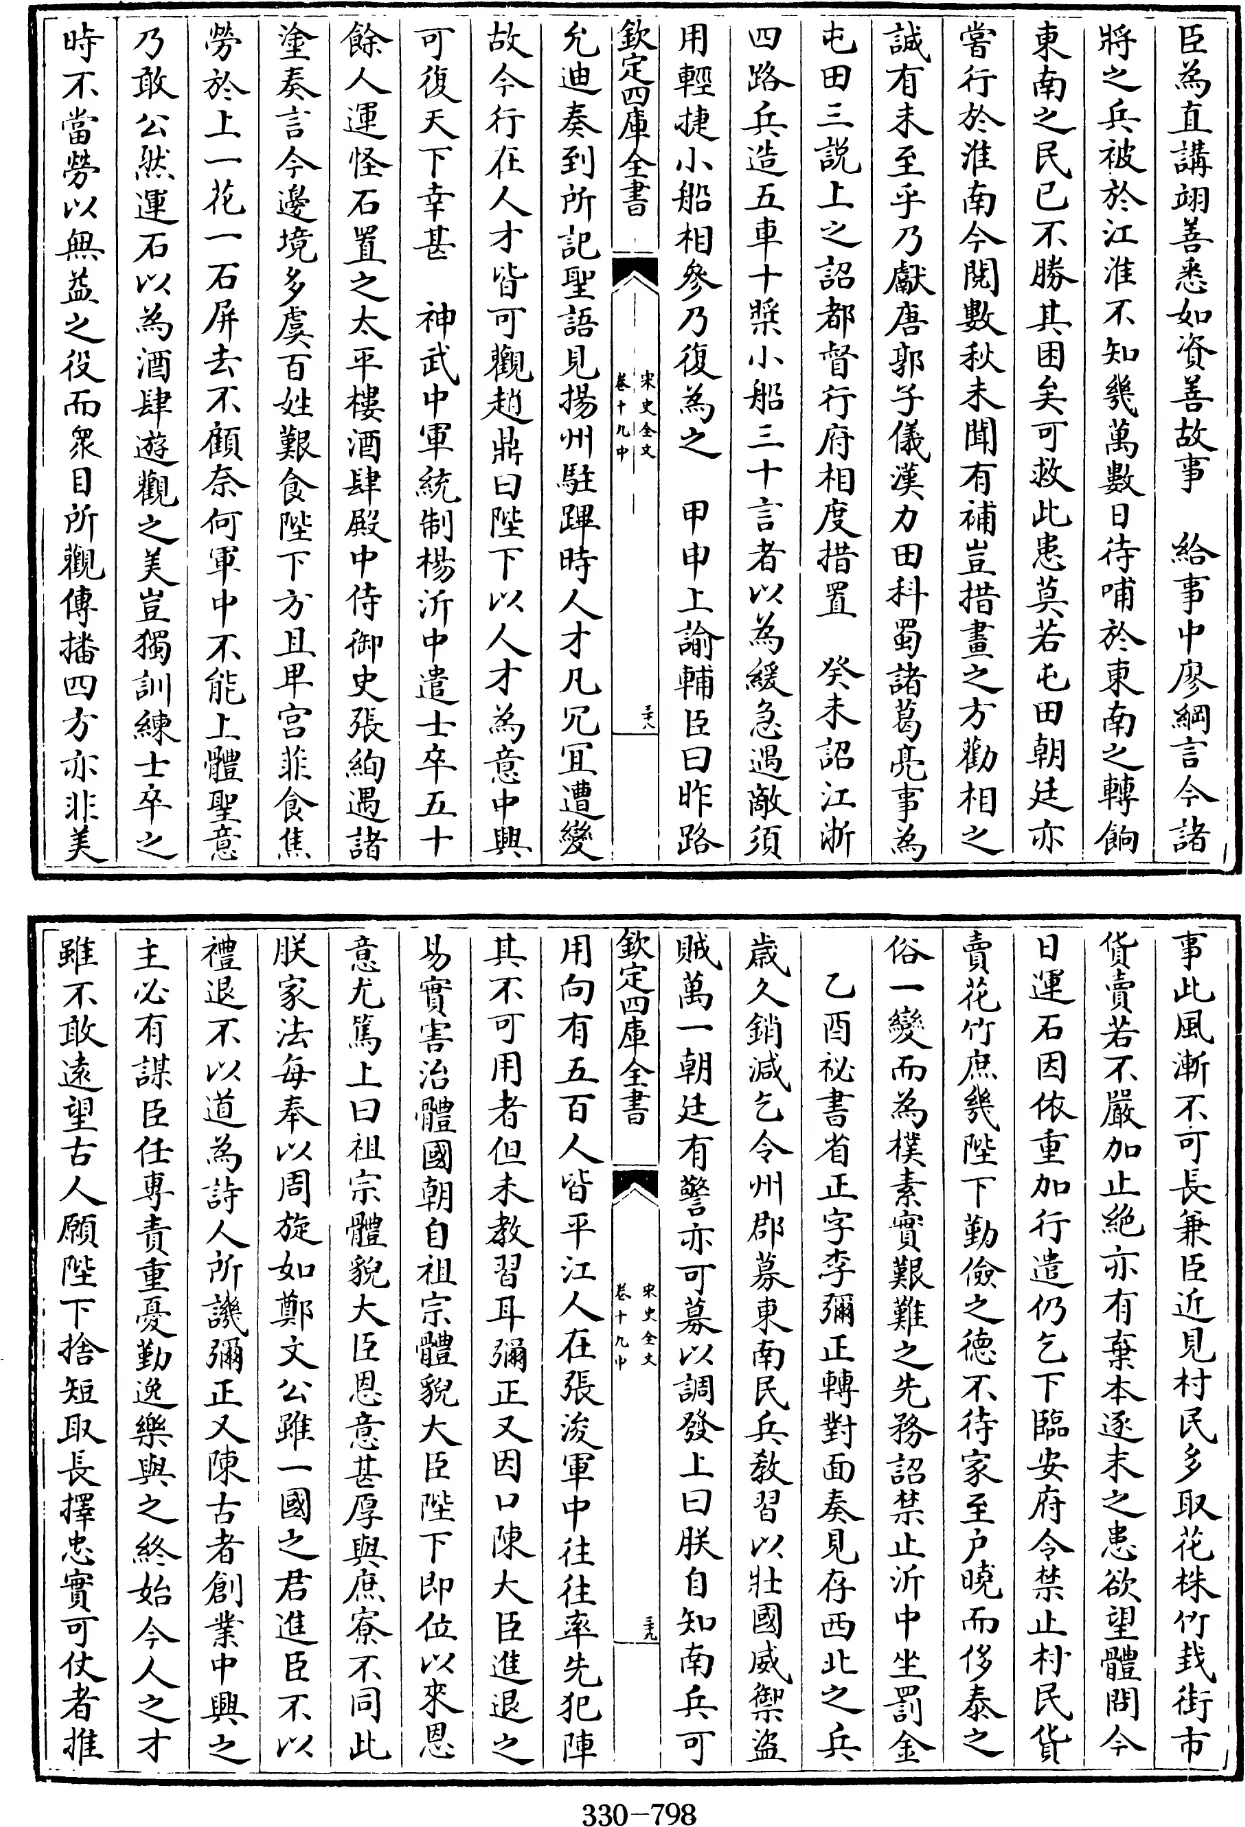 臣為直講翊善悉如資善故事　給事中廖綱言今諸
將之兵被於江淮不知幾萬數日待哺於東南之轉餉
東南之民已不勝其困矣可救此患莫若屯田朝廷亦
嘗行於淮南今閱數秋未聞有補豈措畫之方勸相之
誠有未至乎乃獻唐郭子儀漢力田科蜀諸葛亮事為
屯田三説上之詔都督行府相度措置　癸未詔江浙
四路兵造五車十槳小船三十言者以為緩急遇敵須
用輕捷小船相參乃復為之　甲申上諭輔臣曰昨路
欽定四庫全書
宋史全文
卷十九中
三十八
允迪奏到所記聖語見揚州駐蹕時人才凡冗冝遭變
故今行在人才皆可觀趙鼎曰陛下以人才為意中興
可復天下幸甚　神武中軍統制楊沂中遣士卒五十
餘人運怪石置之太平樓酒肆殿中侍御史張絢遇諸
塗奏言今邊境多虞百姓艱食陛下方且卑宫菲食焦
勞於上一花一石屏去不顧奈何軍中不能上體聖意
乃敢公然運石以為酒肆遊觀之美豈獨訓練士卒之
時不當勞以無益之役而衆目所觀傳播四方亦非美
事此風漸不可長兼臣近見村民多取花株竹栽街市
貨賣若不嚴加止絶亦有棄本逐末之患欲望體問今
日運石因依重加行遣仍乞下臨安府令禁止村民貨
賣花竹庶幾陛下勤儉之德不待家至户曉而侈泰之
俗一變而為樸素實艱難之先務詔禁止沂中坐罰金
乙酉祕書省正字李彌正轉對面奏見存西北之兵
歲久銷減乞令州郡募東南民兵敎習以壯國威禦盜
賊萬一朝廷有警亦可募以調發上曰朕自知南兵可
欽定四庫全書
宋史全文
卷十九中
三十九
用向有五百人皆平江人在張浚軍中往往率先犯陣
其不可用者但未教習耳彌正又因口陳大臣進退之
易實害治體國朝自祖宗體貌大臣陛下即位以來恩
意尤篤上曰祖宗體貌大臣恩意甚厚與庶寮不同此
朕家法每奉以周旋如鄭文公雖一國之君進臣不以
禮退不以道為詩人所譏彌正又陳古者創業中興之
主必有謀臣任專責重憂勤逸樂與之終始今人之才
雖不敢遠望古人願陛下捨短取長擇忠實可仗者推
330-798